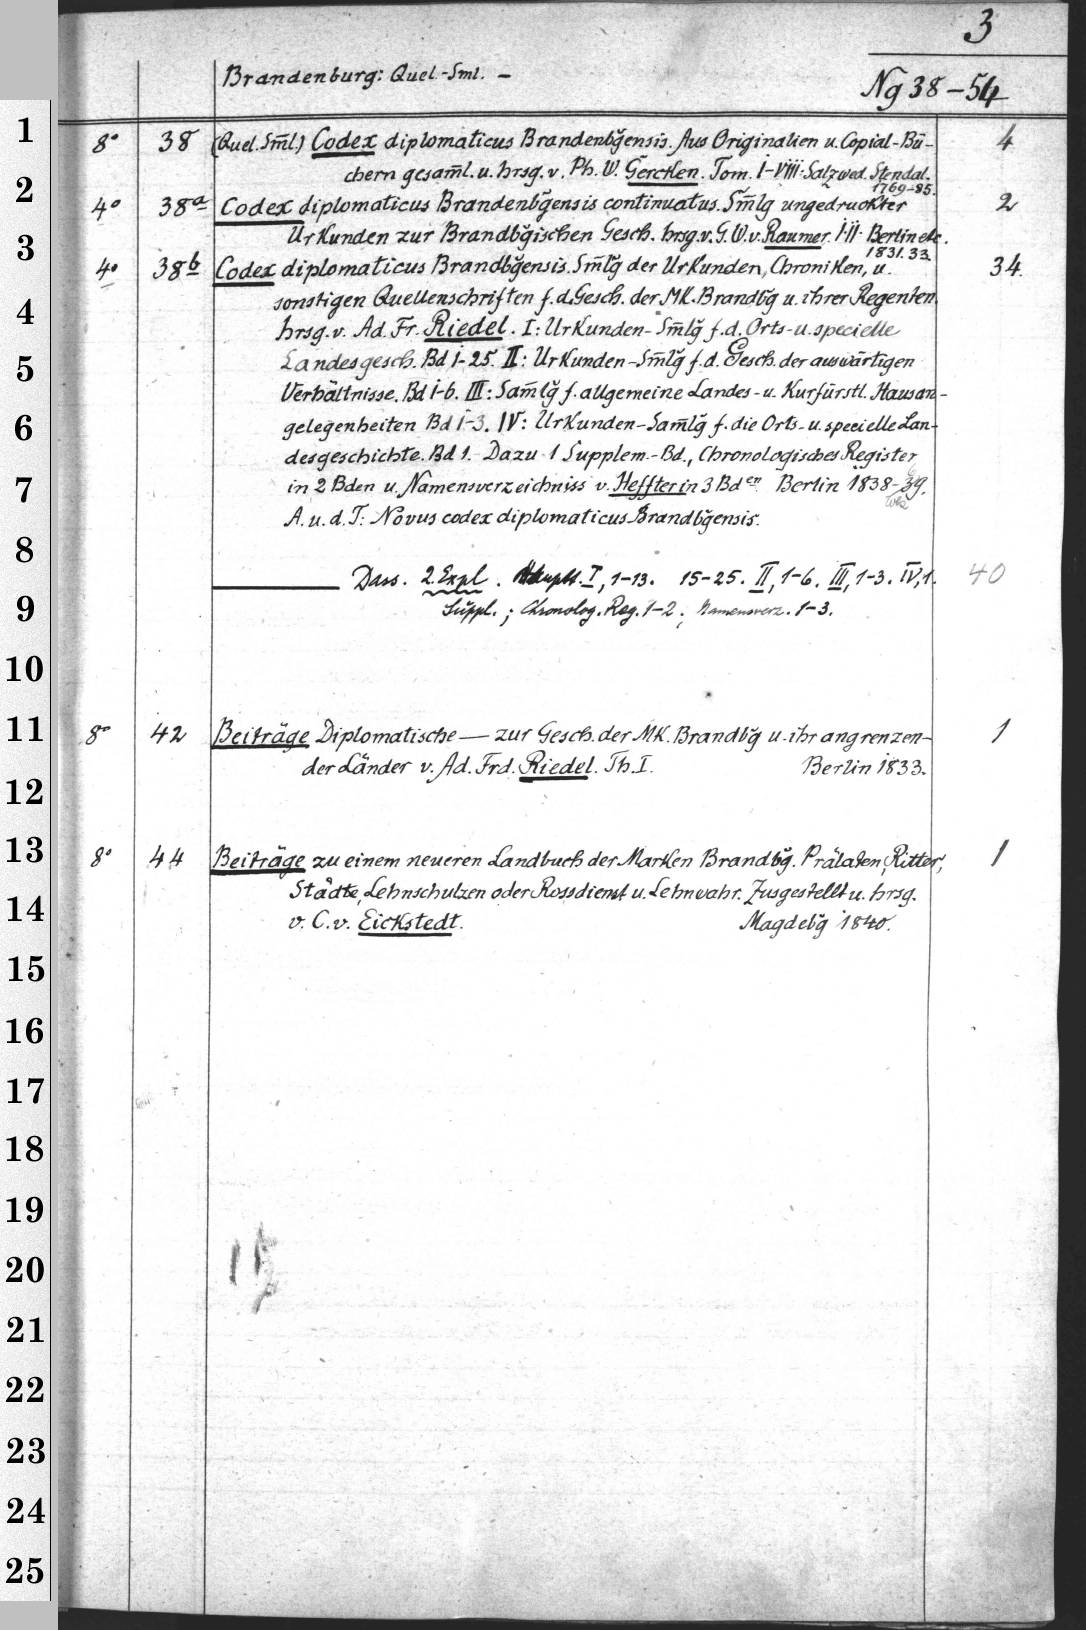 3
Brandenburg: Quel.-Sml. –
Ng 38–54
8° 38 (Quel. Sm̄l.) Codex diplomaticus Brandenbğensis. Aus Originalien u. Copial-Bü- 4
chern gesam̄l. u. hrsg. v. Ph. W. Gercken. Tom. I–VIII. Salzwed. Stendal.
1769-85.
4° 38a Codex diplomaticus Brandenbğensis continuatus. Sm̄lg ungedruckter 2
Urkunden zur Brandbğischen Gesch. hrsg. v. G. W. v. Raumer. I-II. Berlin etc.
1831.33.
4° 38b Codex diplomaticus Brandbğensis. Sm̄lğ der Urkunden, Chroniken, u. 34.
sonstigen Quellenschriften f. d. Gesch. der MK. Brandbğ u. ihrer Regenten.
hrsg. v. Ad. Fr. Riedel. I: Urkunden-Sm̄lğ f. d. Orts- u. specielle
Landesgesch. Bd 1-25. II: Urkunden-Sm̄lğ f. d. Gesch. der auswärtigen
Verhältnisse. Bd 1-6. III: Sam̄lğ f. allgemeine Landes- u. Kurfürstl. Hausan-
gelegenheiten Bd 1-3. IV: Urkunden-Sam̄lğ f. die Orts- u. specielle Lan-
desgeschichte. Bd 1. - Dazu 1 Supplem.-Bd., Chronologisches Register
in 2 Bden u. Namensverzeichniss v. Heffter in 3 Bden. Berlin 1838-69.
A. u. d. T: Novus codex diplomaticus Brandbğensis.
Dass. 2. Expl. Hauptt. I, 1-13. 15-25. II, 1-6. III, 1-3. IV, 1. 40
Suppl.; Chronolog. Reg. 1-2; Namensverz. 1-3.
8° 42 Beiträge Diplomatische — zur Gesch. der MK. Brandbğ u. ihr angrenzen- 1
der Länder v. Ad. Frd. Riedel. Th. I. Berlin 1833.
8° 44 Beiträge zu einem neueren Landbuch der Marken Brandbğ. Prälaten, Ritter, 1
Städte, Lehnschulzen oder Rossdienst u. Lehnwahr. Zusgestellt u. hrsg.
v. C. v. Eickstedt. Magdebğ 1840.
1
2
3
4
5
6
7
8
9
10
11
12
13
14
15
16
17
18
19
20
21
22
23
24
25